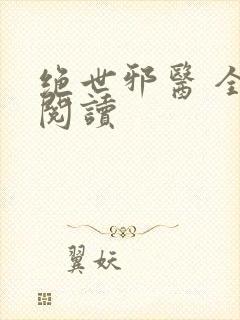 絕世邪醫 全
閱讀
翼妖